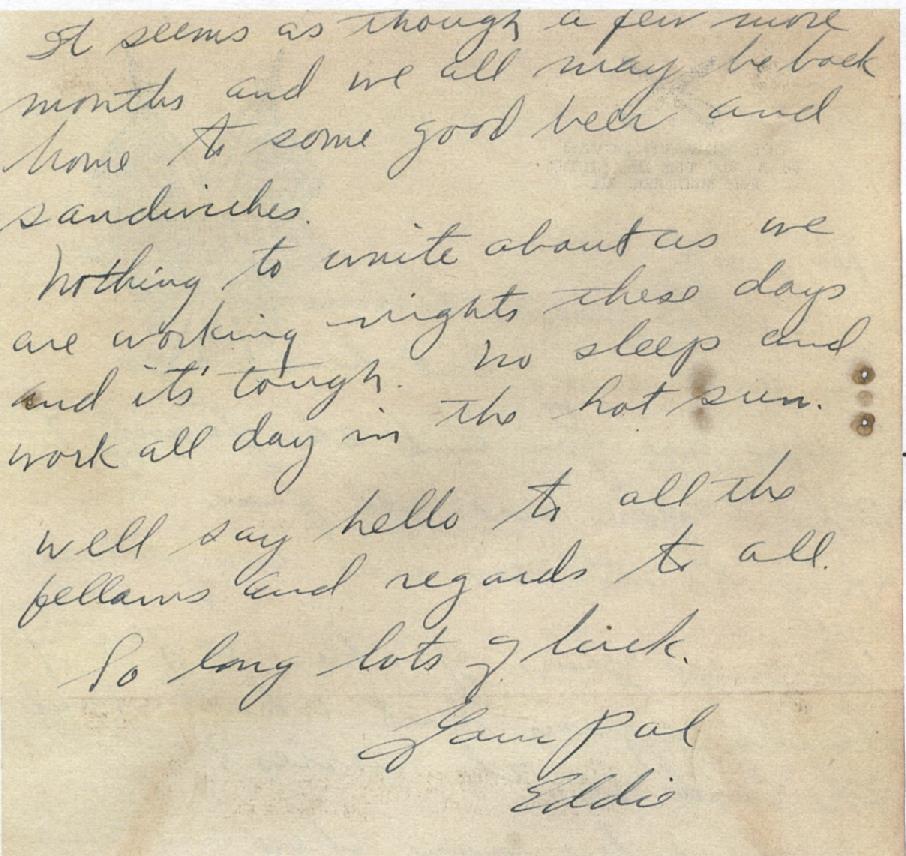 It seems as though a few more
months and we all may be back
home to some good beer and
sandwiches.
Nothing to write about as we
are working nights these days
and it's tough. No sleep and
work all day in the hot sun.
well say hello to all the
fellows and regards to all.
So long lots of luck.
Your Pal
Eddie